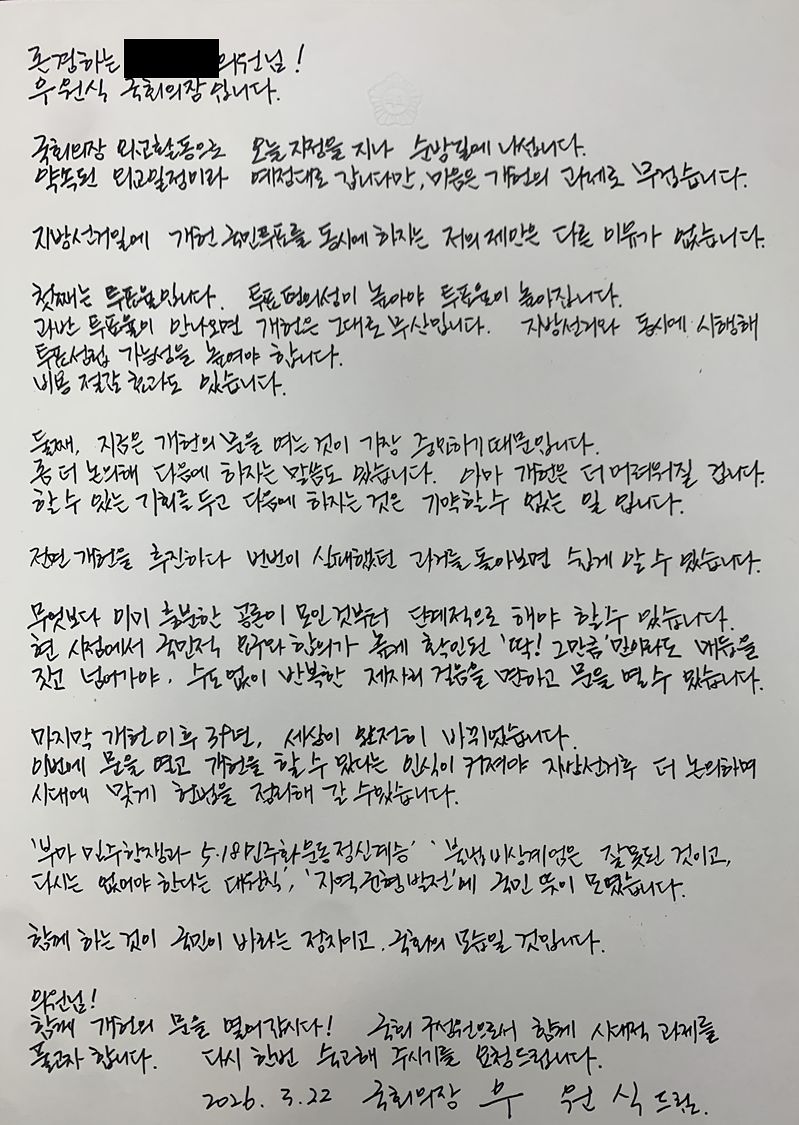 존경하는 의원님!
우원식 국회의장입니다.
국회의장 외교활동으로 오늘 자정을 지나 순방길에 나섭니다.
약속된 외교일정이라 예정대로 갑니다만, 마음은 개헌의 과제로 무겁습니다.
지방선거일에 개헌 국민투표를 동시에 하자는 저의 제안은 다른 이유가 없습니다.
첫째는 투표율입니다. 투표 편의성이 높아야 투표율이 높아집니다.
과반 투표율이 안나오면 개헌은 그대로 무산입니다. 지방선거와 동시에 시행해
투표성립 가능성을 높여야 합니다.
비용 절감 효과도 있습니다.
둘째, 지금은 개헌의 문을 여는 것이 가장 중요하기 때문입니다.
좀 더 논의해 다음에 하자는 말씀도 있습니다. 아마 개헌은 더 어려워질 겁니다.
할 수 있는 기회를 두고 다음에 하자는 것은 기약할 수 없는 일 입니다.
전면 개헌을 추진하다 번번이 실패했던 과거를 돌아보면 쉽게 알 수 있습니다.
무엇보다 이미 충분한 공론이 모인 것부터 단계적으로 해야 할 수 있습니다.
현 시점에서 국민적 요구와 합의가 높게 확인된 '딱! 그만큼' 만이라도 매듭을
짓고 넘어가야, 수도 없이 반복한 제자리 걸음을 면하고 문을 열 수 있습니다.
마지막 개헌 이후 39년, 세상이 완전히 바뀌었습니다.
이번에 문을 열고 개헌을 할 수 있다는 인식이 커져야 지방선거후 더 논의하며
시대에 맞게 헌법을 정리해 갈 수 있습니다.
'부마 민주항쟁과 5·18민주화운동 정신계승' '불법 비상계엄은 잘못된 것이고,
다시는 없어야 한다는 대원칙', '지역 균형 발전'에 국민 뜻이 모였습니다.
함께 하는 것이 국민이 바라는 정치이고, 국회의 모습일 것입니다.
의원님!
함께 개헌의 문을 열어갑시다! 국회 구성원으로서 함께 시대적 과제를
풀고자 합니다. 다시 한번 숙고해 주시기를 요청드립니다.
2026. 3. 22 국회의장 우 원 식 드림.